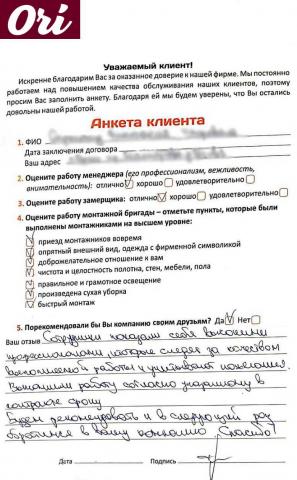 Ori
Уважаемый клиент!
Искренне благодарим Вас за оказанное доверие к нашей фирме. Мы постоянно
работаем над повышением качества обслуживания наших клиентов, поэтому
просим Вас заполнить анкету. Благодаря ей мы будем уверены, что Вы остались
довольны нашей работой.
Анкета клиента
1. ФИО
Дата заключения договора
Ваш адрес
2. Оцените работу менеджера (его профессионализм, вежливость,
внимательность): отлично хорошо удовлетворительно
3. Оцените работу замерщика: отлично хорошо удовлетворительно
4. Оцените работу монтажной бригады – отметьте пункты, которые были
выполнены монтажниками на высшем уровне:
приезд монтажников вовремя
опрятный внешний вид, одежда с фирменной символикой
доброжелательное отношение к вам
чистота и целостность полотна, стен, мебели, пола
правильное и грамотное освещение
произведена сухая уборка
быстрый монтаж
5. Порекомендовали бы Вы компанию своим друзьям? Да Нет
Ваш отзыв Сотрудники показали себя высокими
профессионалами, которые следят за качеством
выполняемой работы и учитывают пожелания.
Выполнили работу согласно указанному в
контракте сроку
Будем рекомендовать и в следующий раз
обратимся в вашу компанию Спасибо!
Дата Подпись